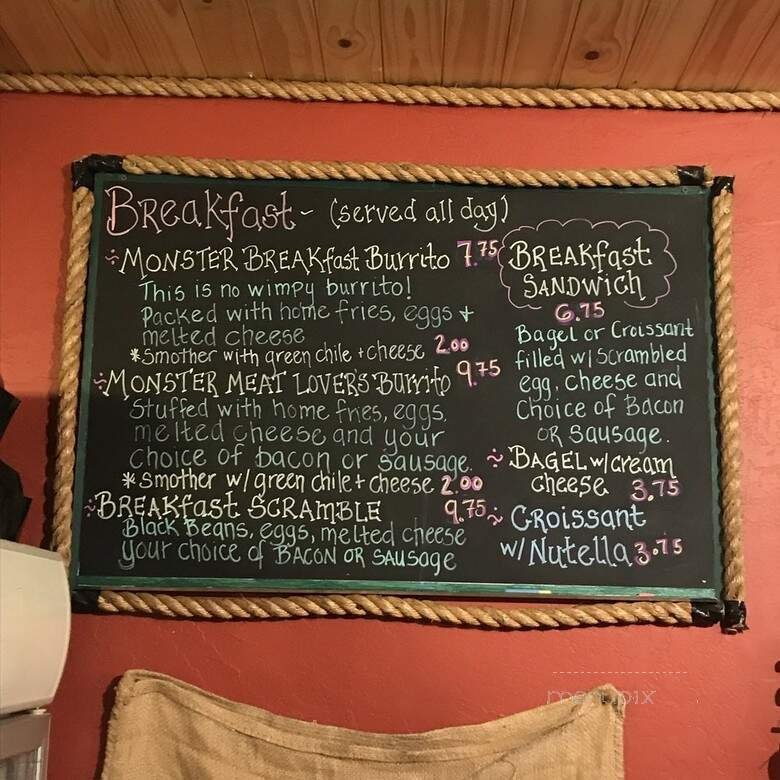 BREAKfast - (served all day)
MONSTER BREAKfast Burrito 7.75
This is no wimpy burrito!
Packed with home fries, eggs +
melted cheese
*Smother with green chile + cheese 2.00
MONSTER MEAT LOVERS Burrito 9.75
Stuffed with home fries, eggs,
melted cheese and your
choice of bacon or sausage.
*Smother w/ green chile + cheese 2.00
BREAKfast SCRAMBLE 9.75
Black Beans, eggs, melted cheese
your choice of BACON OR SAUSAGE
BREAKfast
SANDWICH
6.75
Bagel or Croissant
filled w/ Scrambled
egg, cheese and
Choice of Bacon
OR Sausage.
BAGEL w/cream
cheese 3.75
CROISSANT
w/Nutella 3.75
menupix